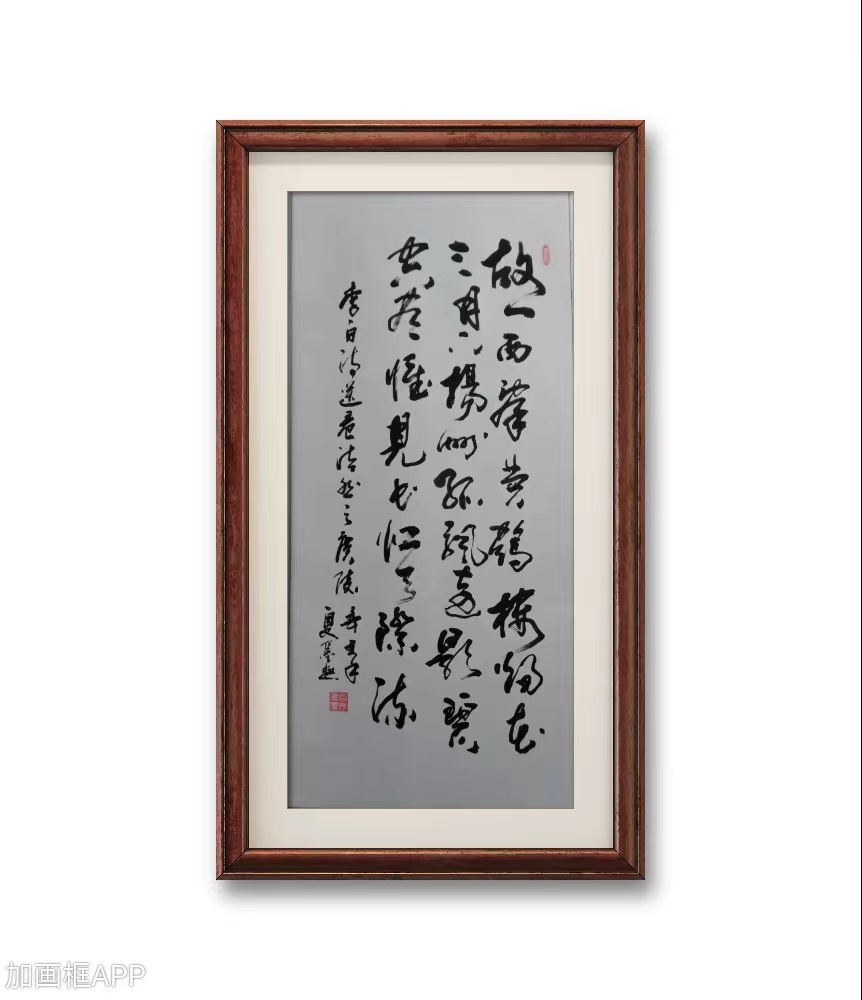 故人西辞黄鶴楼烟花
三月下揚州孤帆遠影碧
空尽惟見长江天際流
李白诗送孟浩然之廣陵 辛丑年
夏
加画框APP